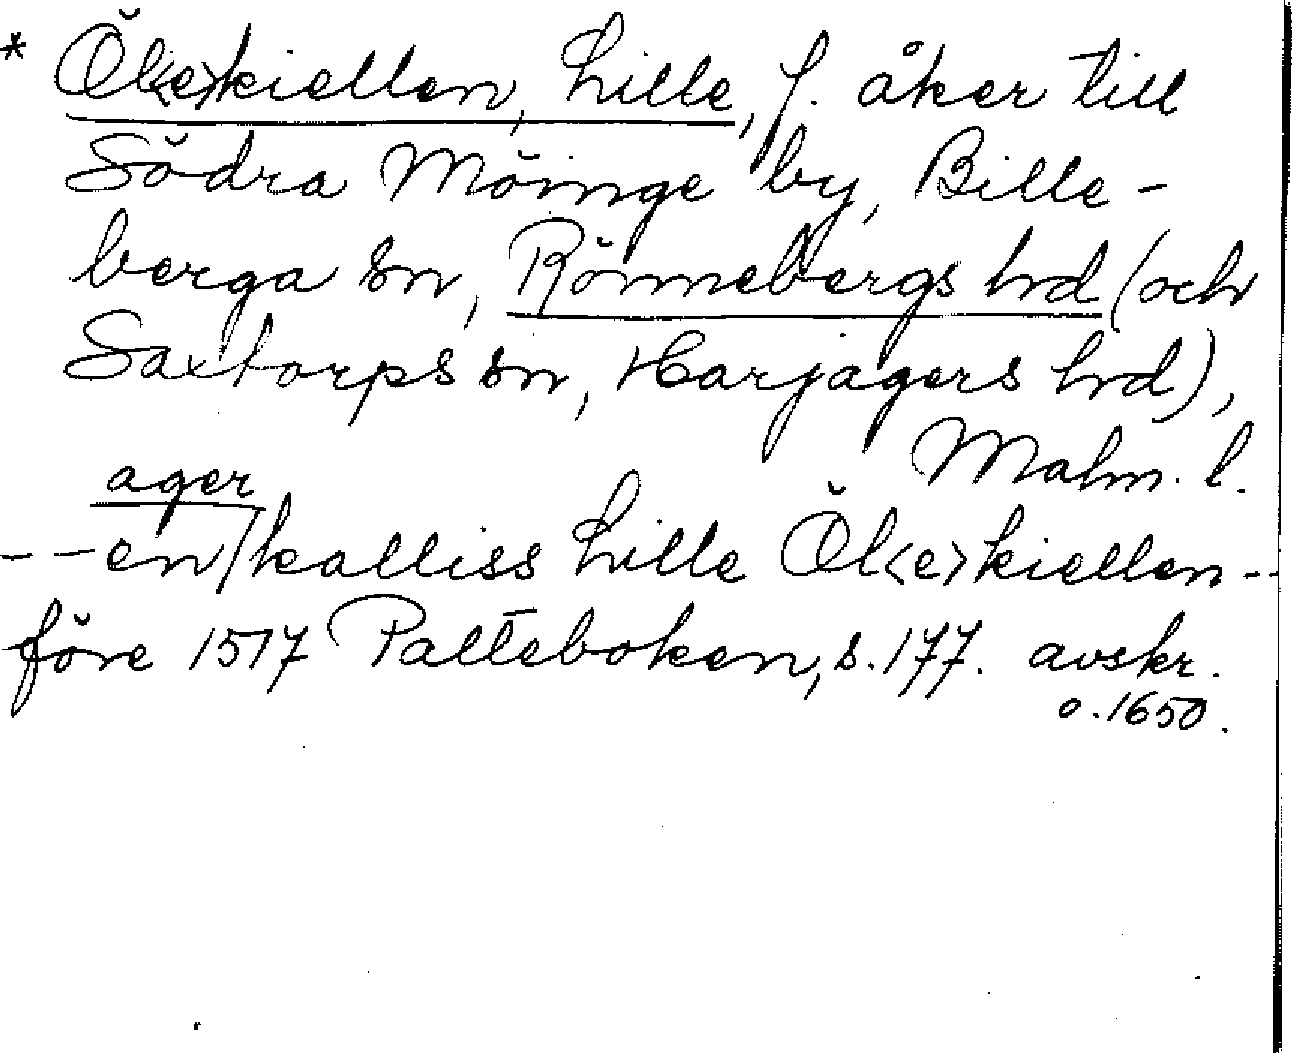 * Öl<e>kiellen, Lille, f. åker till
Södra Möinge by, Bille-
berga sn, Rönnebergs hd (och
Saxtorps sn, Harjagers hd),
Malm. l.
ager
-- en/kalliss Lille Öl<e>kiellen --
före 1517 Palteboken, s. 177. avskr.
o. 1650.